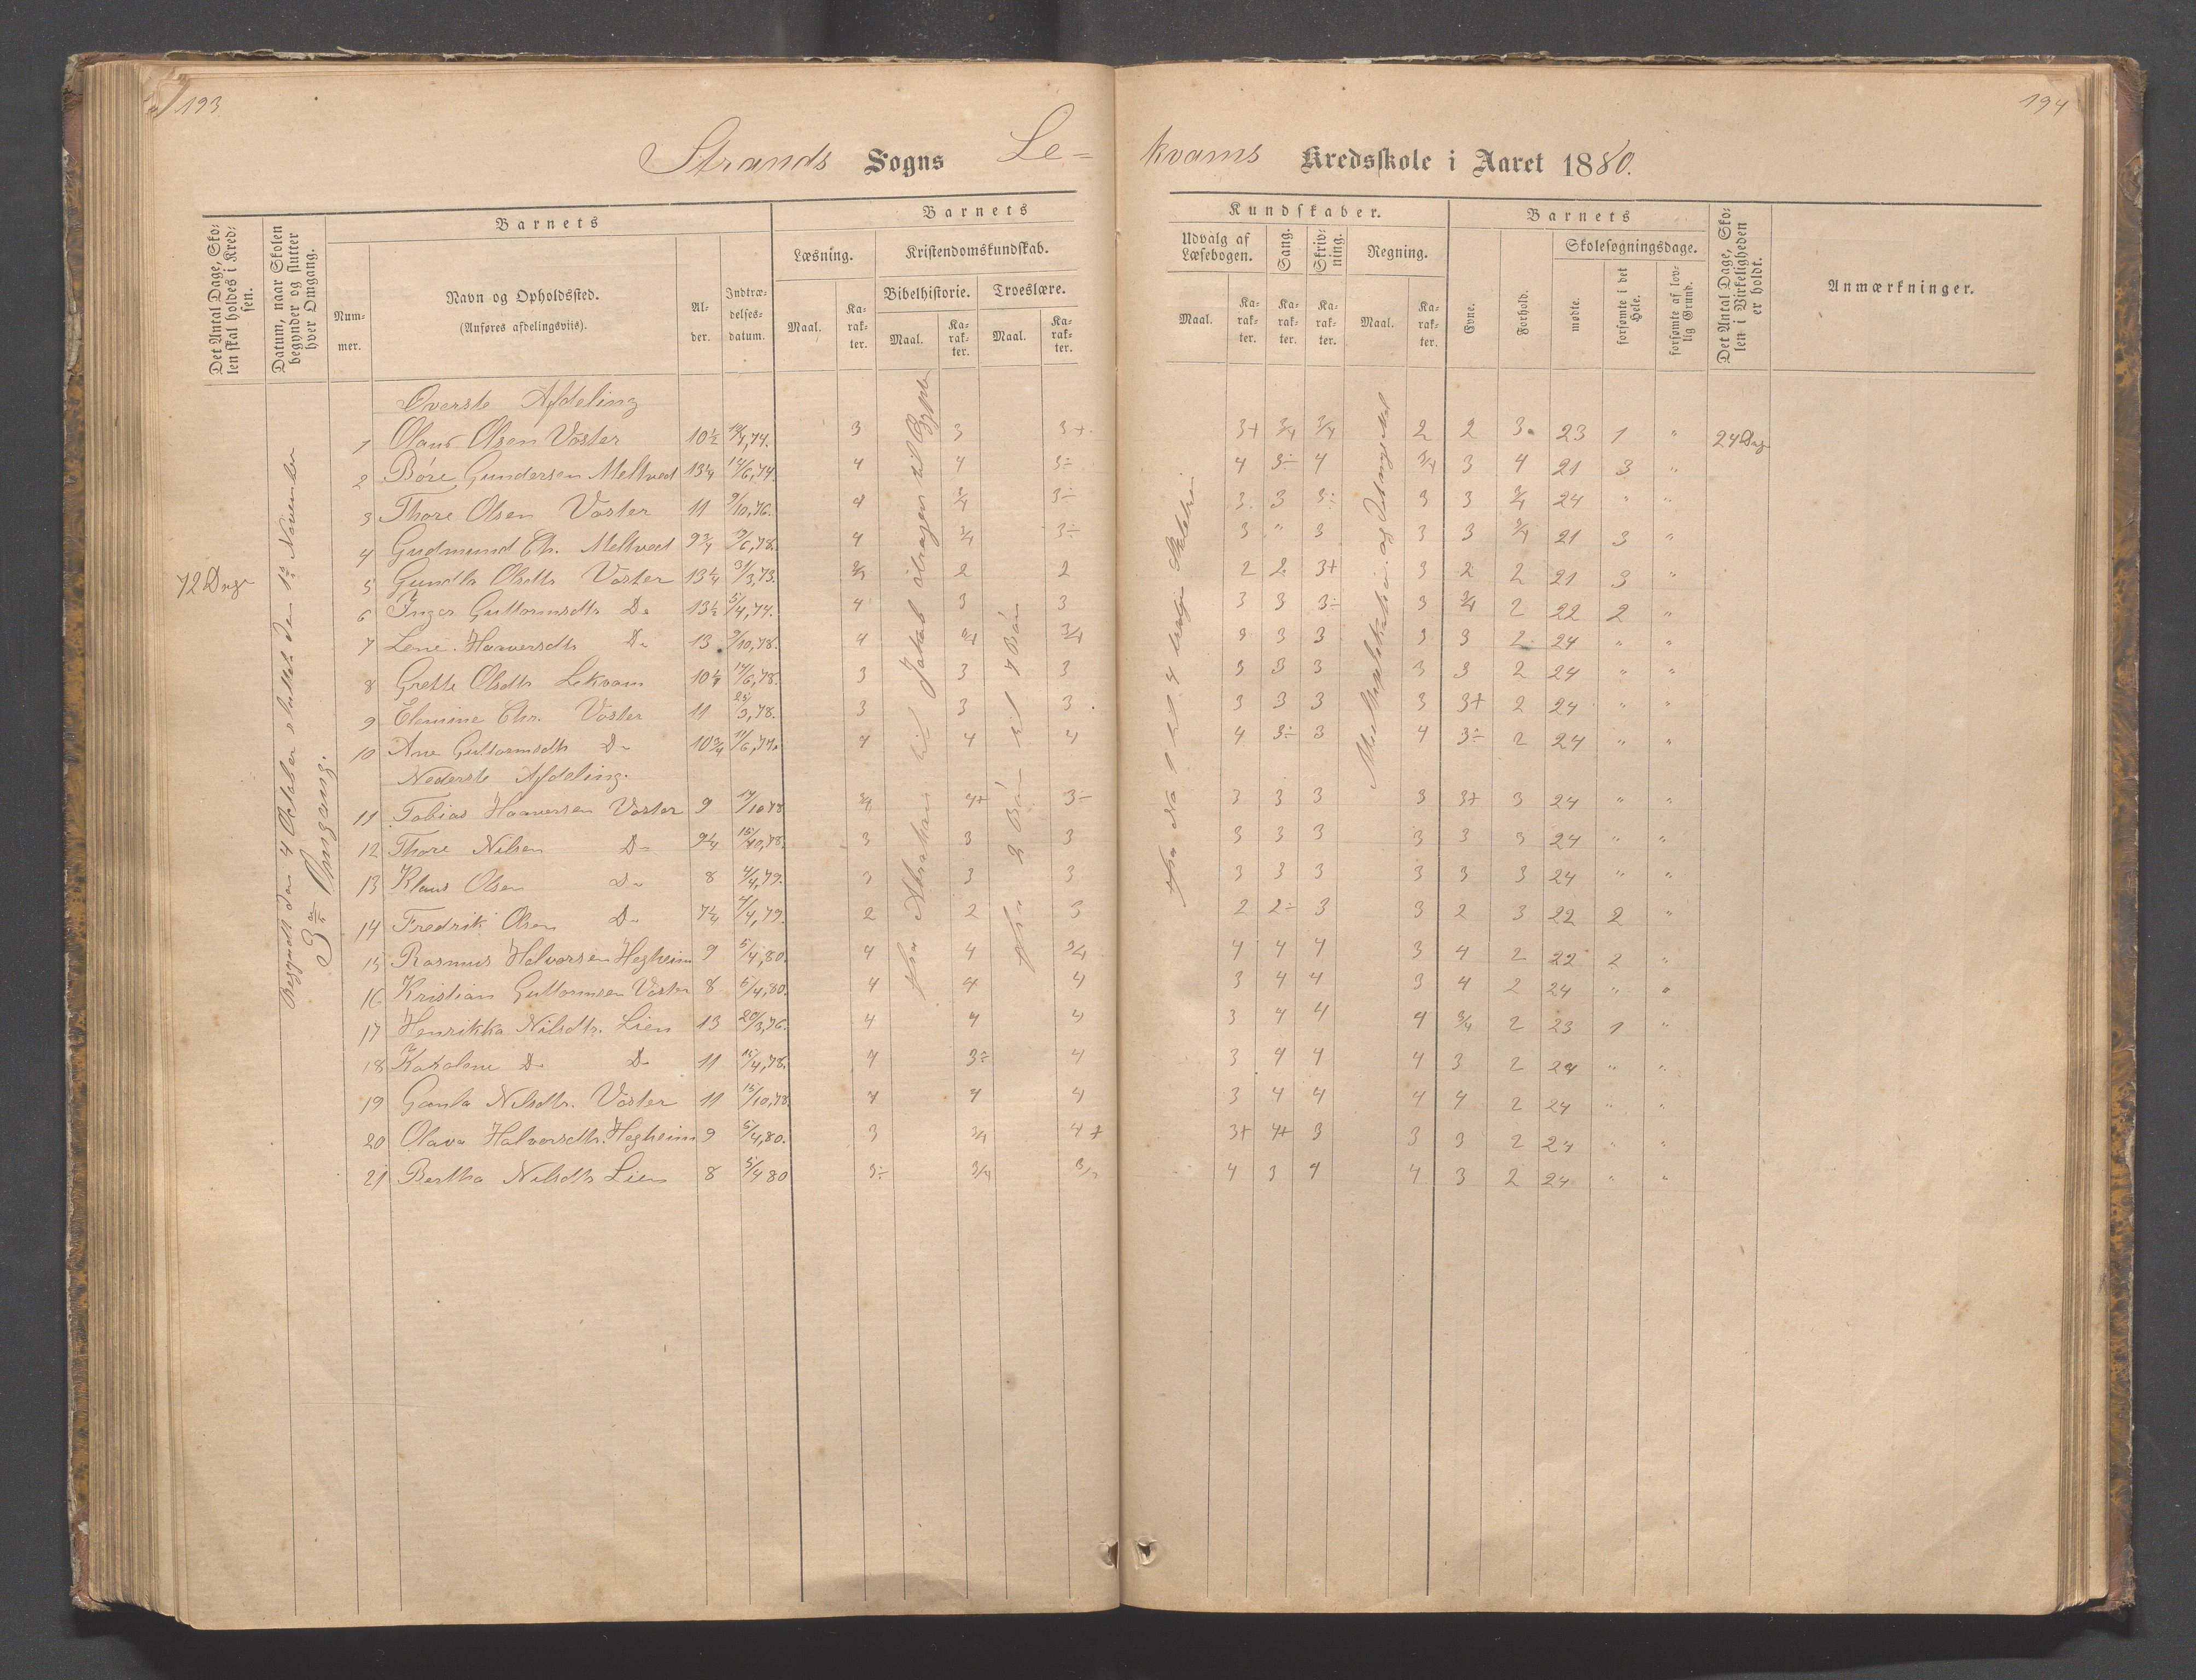 193
194
Strands Sogns Le=
kvams Kredsskole i Aaret 1880.
Det Antal Dage, Skolen skal holdes i Kredsen.
Datum, naar Skolen begynder og slutter hver Omgang.
Barnets
Nummer.
Navn og Opholdssted.
(Anføres afdelingsviis).
Alder.
Indtrædelsesdatum.
Barnets
Læsning.
Maal.
Karakter.
Kristendomskundskab.
Bibelhistorie.
Maal.
Karakter.
Troeslære.
Maal.
Karakter.
Kundskaber.
Udvalg af Læsebogen.
Maal.
Karakter.
Sang.
Karakter.
Skrivning.
Karakter.
Regning.
Maal.
Karakter.
Barnets
Evne.
Forhold.
Skolesøgningsdage.
mødte.
forsømte i det Hele.
forsømte af lovlig Grund.
Det Antal Dage, Skolen i Virkeligheden er holdt.
Anmærkninger.
72 Dage
Begyndt den 4 Oktober sluttet den 1ste November
3die Omgang.
Fra Abraham til Jakob drager til Egypten
Fra 2 Bøn til 7 Bøn
24 Dage
Øverste Afdeling
1 Olaus Olsen Voster 10½ 3 3 3+ 3+ 3/4 3/4 2 2 3 23 1 "
2 Børe Gundersen Meltved 13¼ 14/6,74. 4 4 3÷ 4 3÷ 4 3/4 3 4 21 3 "
3 Thore Olsen Voster 11 9/10,76. 4 3/4 3÷ 3 3 3÷ 3 3 3/4 24 " "
4 Gudmund Ch. Meltved 9¾ 4 3/4 3÷ 3 " 3 3 3 3/4 21 3 "
5 Gundla Olsdtr Voster 13¼ 31/3,73. 2 2 2 2 3+ 3 2 2 21 3 "
6 Inger Guttormsdtr Do 13½ 5/4,74. 4 3 3 3 3 3÷ 3 3/4 2 22 2 "
7 Lene Haaversdtr Do 13 9/10,78. 4 3/4 3/4 3 3 3 3 3 2 24 " "
8 Grethe Olsdtr Lekvam 10¼ 14/6,78. 3 3 3 3 3 3 3 3 2 24 " "
9 Elemine Chr. Voster 11 25/3,78. 3 3 3 3 3 3 3 3+ 2 24 " "
10 Ane Guttormsdtr Do 10¾ 4 4 4 4 3÷ 3 4 3÷ 2 24 " "
Nederste Afdeling.
11 Tobias Haaversen Voster 9 14/10 78 3/4 4+ 3÷ 3 3 3 3 3+ 3 24 " "
12 Thore Nilsen Do 9¼ 15/10,78. 3 3 3 3 3 3 3 3 3 24 " "
13 Klaus Olsen Do 8 4/4,79. 3 3 3 3 3 3 3 3 3 24 " "
14 Fredrik Olsen Do 7¼ 4/4,79. 2 2 3 2 2÷ 3 3 2 3 22 2 "
15 Rasmus Halvorsen Hegheim 9 5/4,80. 4 4 3/4 4 4 4 3 4 2 22 2 "
16 Kristian Guttormsen Voster 8 5/4,80. 4 4 4 3 4 4 3 4 2 24 " "
17 Henrikka Nilsdtr. Lien 13 20/3,76. 4 4 4 3 4 4 4 3/4 2 23 1 "
18 Karolene Do Do 11 15/4,78. 4 3÷ 4 3 4 4 4 3 2 24 " "
19 Gunla Nilsdtr. Voster 11 15/10,78. 4 4 4 3 4 4 4 4 2 24 " "
20 Olava Halvorsdtr. Hegheim 9 5/4,80. 3 3/4 4+ 3+ 4+ 3 3 3 2 24 " "
21 Bertha Nilsdtr Lien 8 5/4 80 3÷ 3/4 4 3 4 4 3 2 24 " "